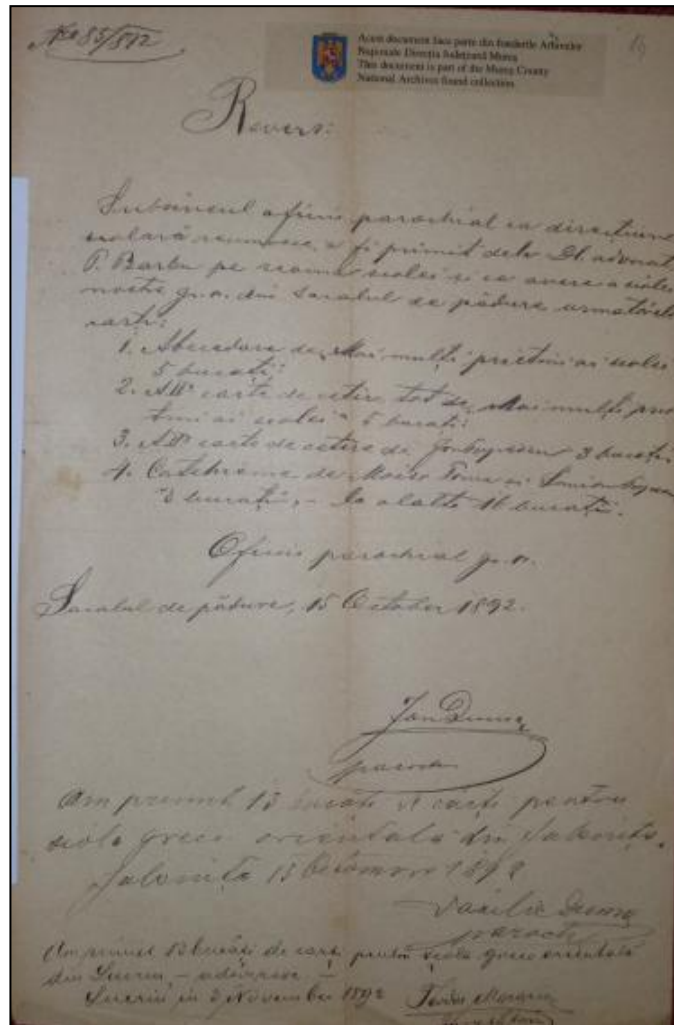 No 85/892
Acest document face parte din fondurile Arhivelor
Naționale Direcția Județeană Mureș
This document is part of the Mureș County
National Archives found collection
Revers:
Subsemnul oficiu parochial ca direcțiune
scolară recunosce a fi primit dela Dl. advocat
P. Barbu pe seama scolei și ca avere a scolei
nostre gr. or. din Sacalul de pădure urmatorele
carți:
1. Abecedare de „Mai mulți prietini ai scolei
5 bucăți;
2. A IIa carte de cetire tot de „Mai mulți prie
tini ai scolei" 5 bucați;
3. A IIa carte de cetire de 3 bucați
4. Catechisme de Moise Toma și
3 bucați, – La olaltă 16 bucați.
Oficiu parochial gr. or.
Sacalul de pădure, 15 October 1892.
Ioan Duma
paroch
Am primit 13 bucati de cărți pentru
scola greco orientala din Iabenița.
Iabenița 15 Octomvre 1892
Vasilie Duma
paroch
Am primit 13 bucăți de carți pentru școla greco orientală
din – adăveresc –
in 3 November 1892